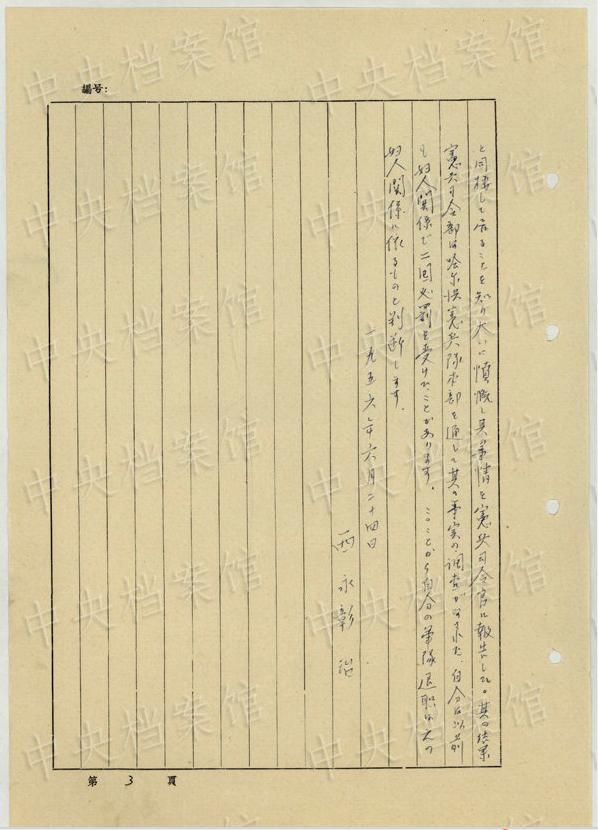 编号:
と同棲して居ることを知り大いに憤慨し其事情を憲兵司令官に報告した。其の結果
憲兵司令部は哈尔浜憲兵隊本部を通して其の事実の調査がなされた、自分は以前
も妇人関係で二回処罰を受けたことがあります。このことから自分の軍隊退職は大の
妇人関係に依るものと判断します。
一九五六年六月二十四日
西永彰治
第 3 頁
中央档案馆